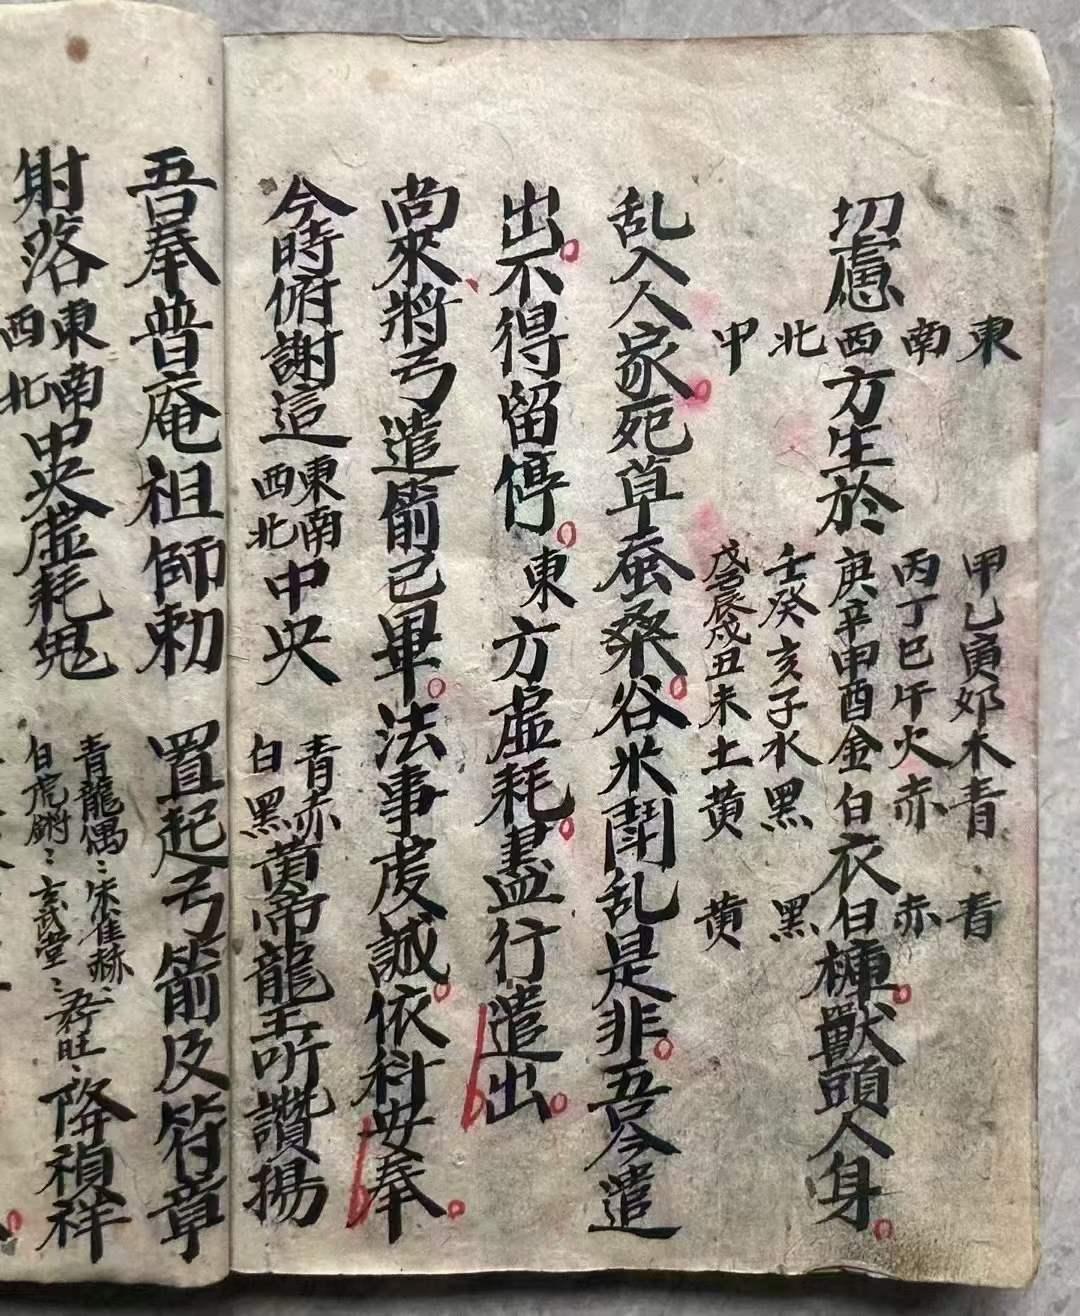 東　甲乙寅卯木青　青
南　丙丁巳午火赤　赤
切慮西方生於庚辛申酉金白衣白褲獸頭人身
北　壬癸亥子水黑　黑
中　戊己辰戌丑未土黄　黄
乱入人家死草蚕桑谷米鬧乱是非吾今遣
出不得留停東方虚耗盡行遣出
尚來將弓遣箭已畢法事虔誠依科安奉
今時俯謝這東南西北中央　青赤白黑黄帝龍王听讚揚
吾奉普庵祖師勅　置起弓箭及符章
射落東南西北中央虚耗鬼　青龍偶〻朱雀赫〻白虎鏘〻玄武堂〻五行旺〻降禎祥